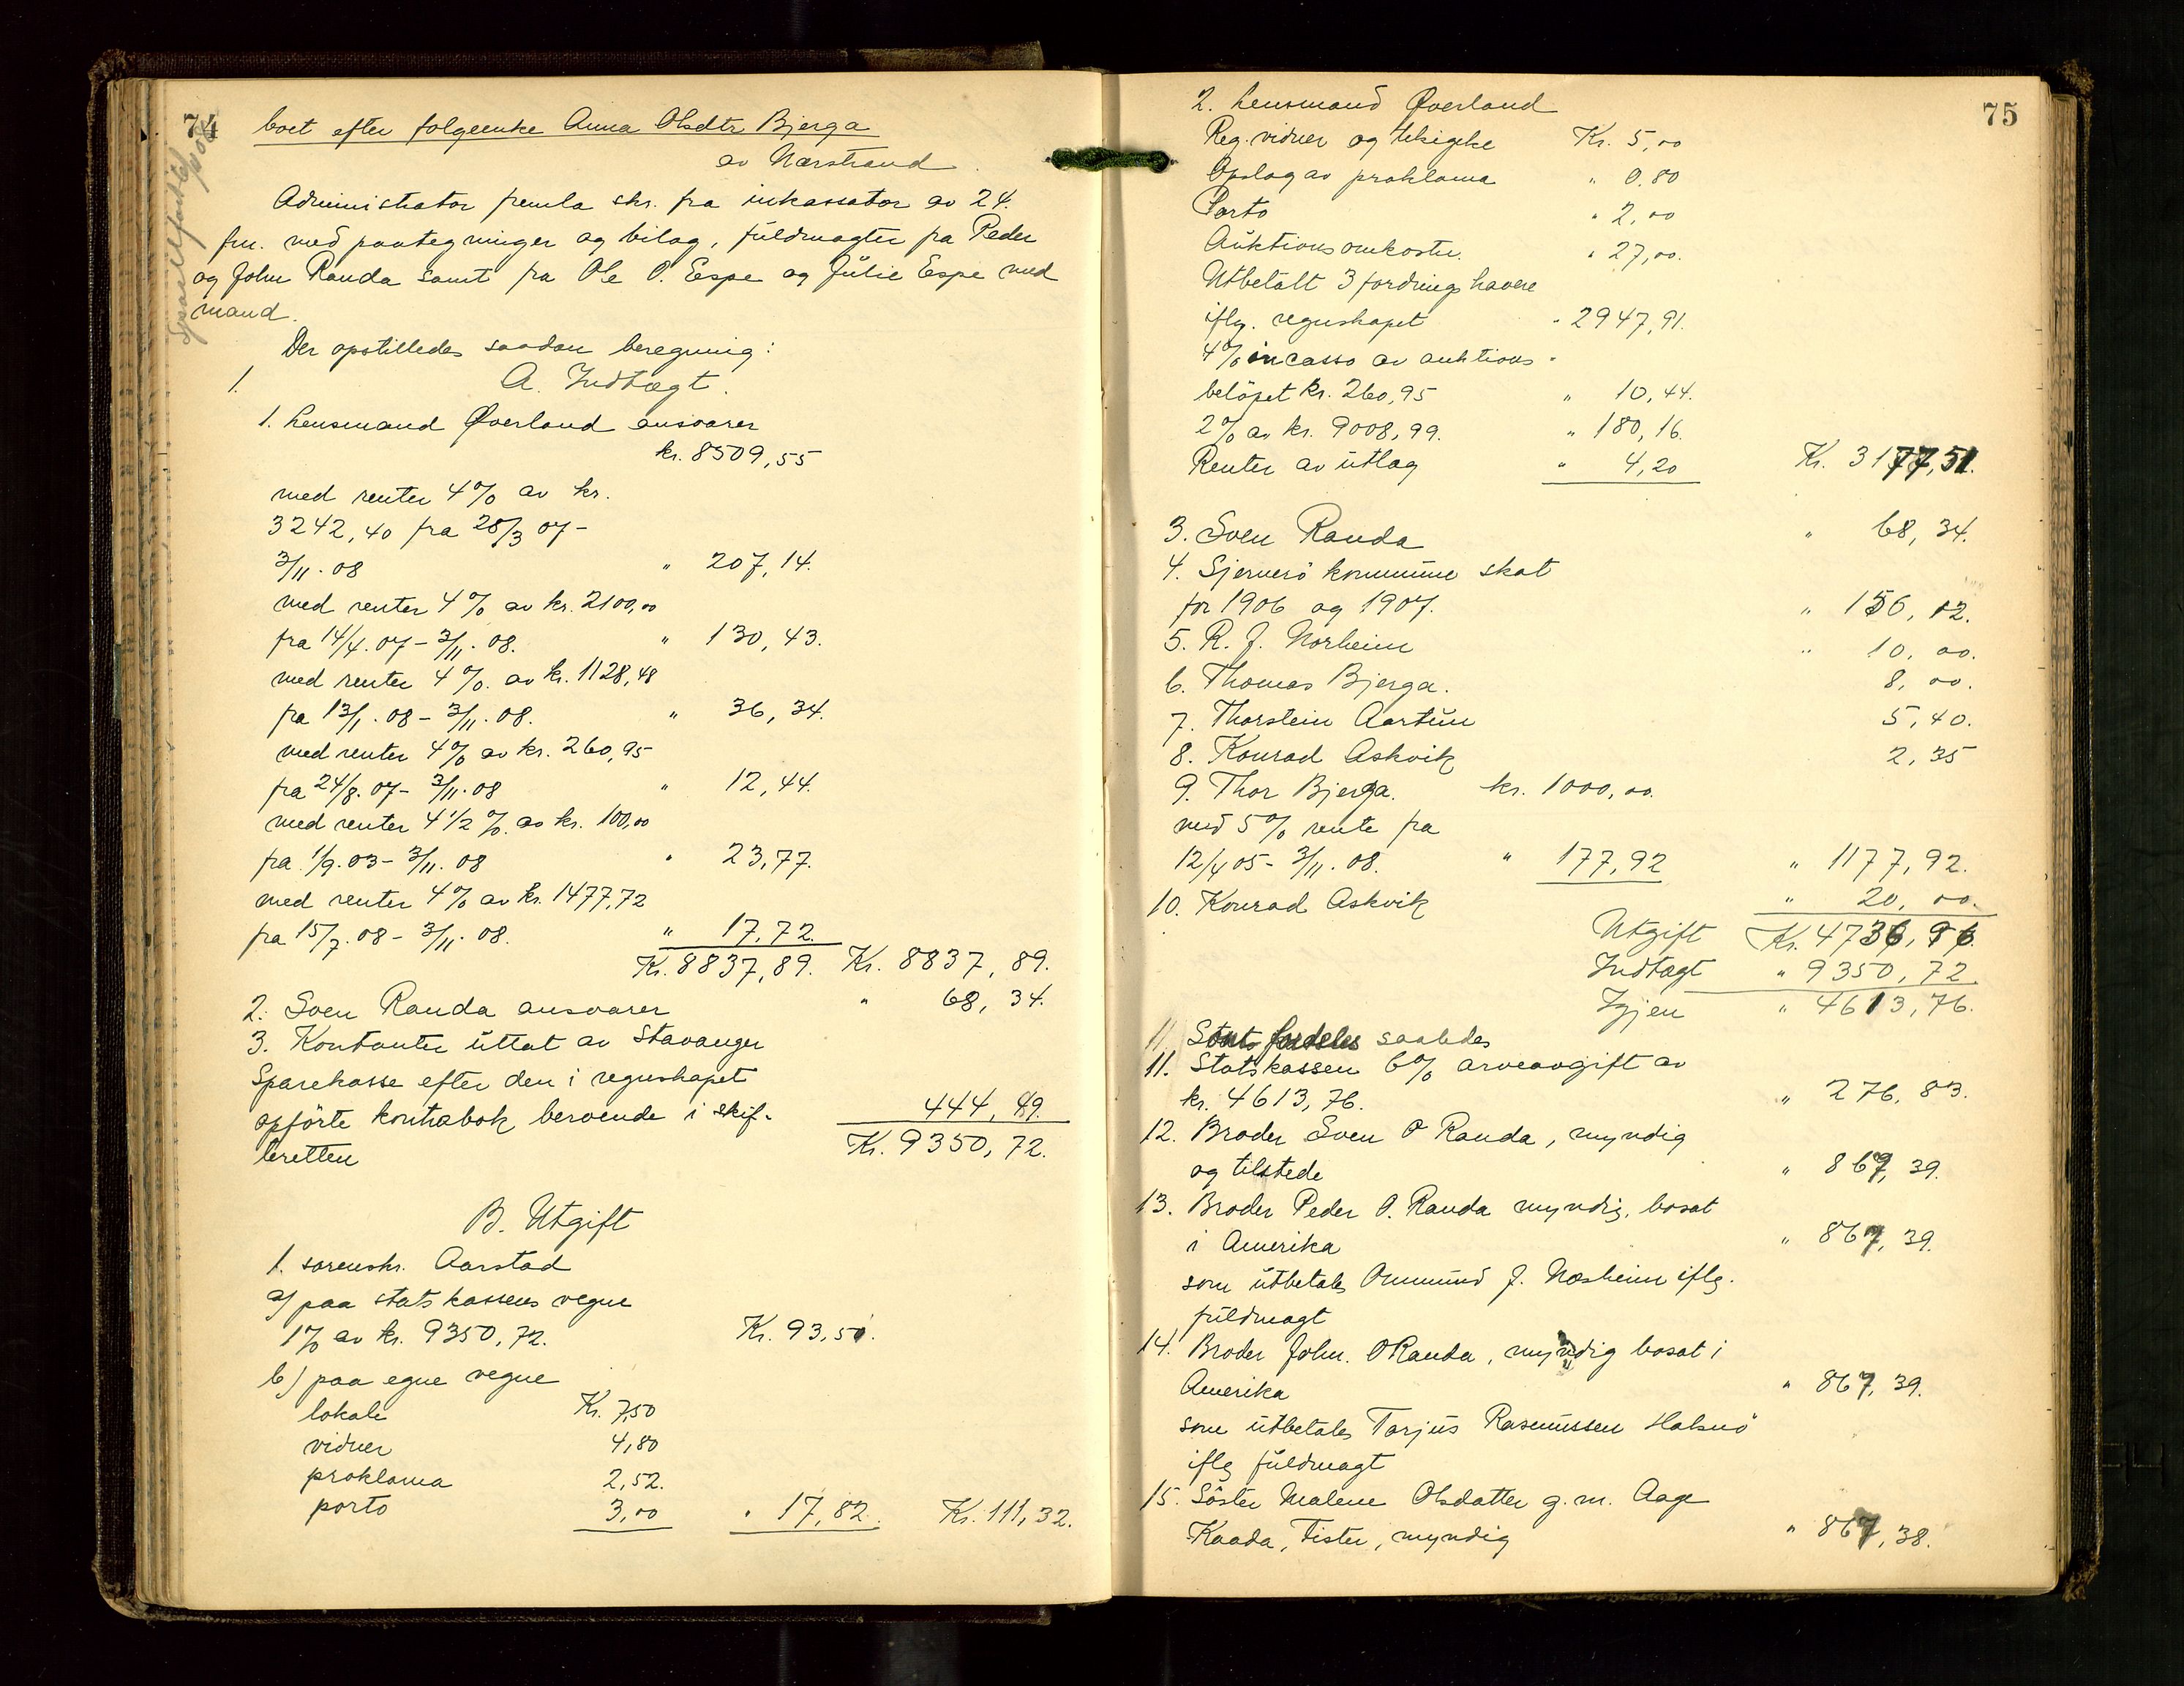 74
boet efter folgeenke Anna Olsdtr Bjerga
av Nærstrand
Administrator fremla skr. fra inkassator av 24.
fm. med paategninger og bilag, fuldmagter fra Peder
og John Randa samt fra Ole O. Espe og Julie Espe med
mand.
Der opstilledes saadan beregning:
1. A. Indtægt.
1. Lensmand Øverland ansvarer
kr. 8509,55
med renter 4% av kr.
3242,40 fra 28/3 07-
3/11. 08 " 207,14.
med renter 4% av kr. 2100,00
fra 14/4. 07- 3/11. 08. " 130,43.
med renter 4%. av kr. 1128,48
fra 13/1. 08- 3/11. 08. " 36,34.
med renter 4% av kr. 260,95
fra 24/8. 07- 3/11. 08 " 12,44.
med renter 4 1/2 %. av kr. 100,00
fra 1/9. 03- 3/11. 08 " 23,77.
med renter 4% av kr. 1477,72
fra 15/7. 08- 3/11. 08. " 17,72.
Kr. 8837,89. Kr. 8837,89.
2. Sven Randa ansvarer " 68,34.
3. Kontanter uttat av Stavanger
Sparekasse efter den i regnskapet
opførte kontrabok beroende i skif-
teretten 444,49.
Kr. 9350,72.
B. Utgift
1. sorenskr. Aarstad
a) paa statskassens vegne
1% av kr. 9350,72. Kr. 93,50.
b) paa egne vegne
lokale Kr. 7,50
vidner 4,80
proklama 2,52.
porto 3,00 " 17,82. Kr. 111,32.
75
2. Lensmand Øverland
Reg. vidner og Kr. 5,00
Opslag av proklama " 0,80
Porto " 2,00
Auktionsomkostn. " 27,00.
Utbetalt 3 fordringshavere
iflg. regnskapet " 2947,91.
4% incasso av auktions-
beløpet kr. 260,95 " 10,44.
2% av kr. 9008,99. " 180,16.
Renter av utlag " 4,20 Kr. 3177,51.
3. Sven Randa " 68,34.
4. Sjernerø kommune skat
for 1906 og 1907. " 156,12.
5. R. J. Norheim " 10,00.
6. Thomas Bjerga. 8,00.
7. Thorstein Aartun 5,40.
8. Konrad Askvik 2,35
9. Thor Bjerga. kr. 1000,00.
med 5% rente fra
12/4 05- 3/11. 08. " 177,92 " 1177,92.
10. Konrad Askvik " 20,00.
Utgift Kr. 4736,96.
Indtægt " 9350,72.
Igjen " 4613,76.
11. saaledes
11. Statskassen 6% arveavgift av
kr. 4613,76. " 276,83.
12. Broder Sven O Randa, myndig
og tilstede " 867,39.
13. Broder Peder O. Randa myndig, bosat
i Amerika " 867,39.
som utbetales Ommund J. Næsheim iflg.
fuldmagt
14. Broder John. O Randa, myndig bosat i
Amerika " 867,39.
som utbetales Tarjus Rasmussen Halsnø
iflg fuldmagt
15. Søster Malene Olsdatter g. m. Aage
Kaada, Fister, myndig " 867,38.